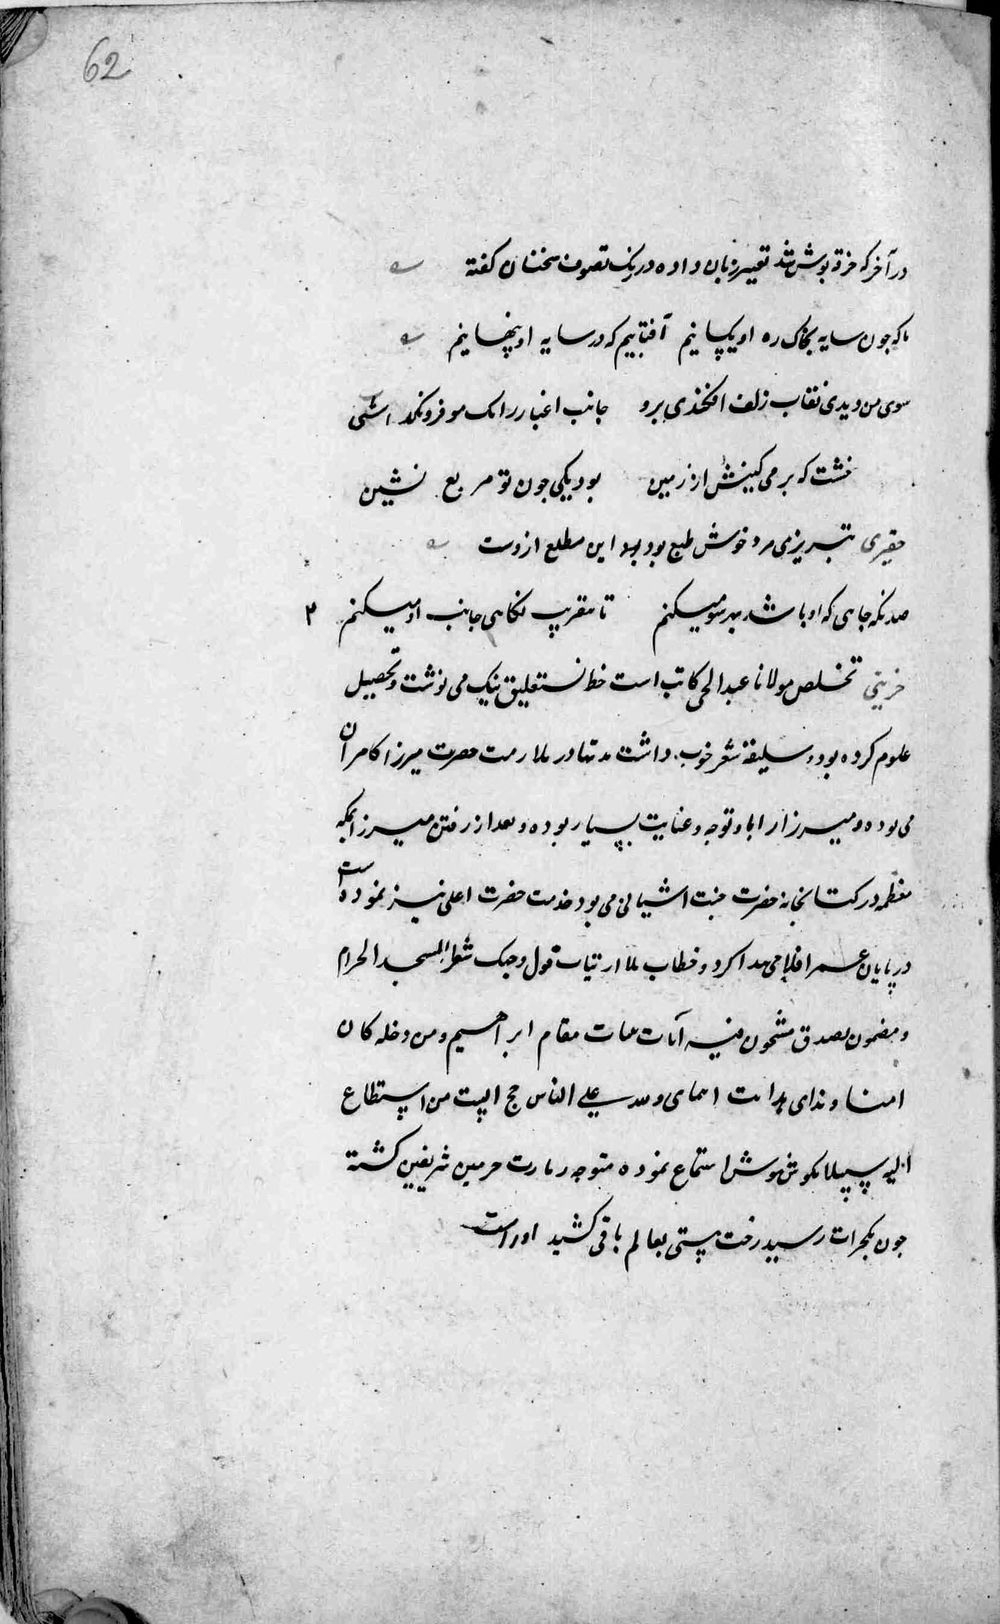 62
در آخر که خرقه پوش شد تغییر زبان داده در رنگ تصوف سخنان گفته
ما که چون سایه بخاک ره او یکسانیم آفتابیم که در سایه او پنهانیم
سوی من دیدی نقاب زلف افکندی برو جانب اغیار را موفرو
خشت که بر می از زمین بود یکی چون تو مربع نشین
حقیری تبریزی مرد خوش طبع بود این مطلع ازوست
صد نکه جاهی که او باشد بهر سو میکنم تا بتقریب نکاهی جانب او میکنم ۲
تخلص مولانا عبدالحی کاتب است خط نستعلیق نیک می نوشت و تحصیل
علوم کرده بود و سلیقه شعر خوب داشت مدتها در ملازمت حضرت میرزا کامران
می بوده و میرزا را باو توجه و عنایت بسیار بوده و بعد از رفتن میرزا بمکه
معظمه در کتابخانه حضرت جنت اشیانی می بود خدمت حضرت اعلی نیز نموده است
در پایان عمر پیدا کرد و خطاب قول وجهک شطر المسجد الحرام
و مضمون صدق مشحون فیه آیات بینات مقام ابراهیم و من دخله کان
امنا و ندای هدایت ولله علی الناس حج البیت من استطاع
الیه سبیلا بکوش هوش استماع نموده متوجه زیارت حرمین شریفین کشته
چون بکجرات رسید رخت هستی بعالم باقی کشید اوراست